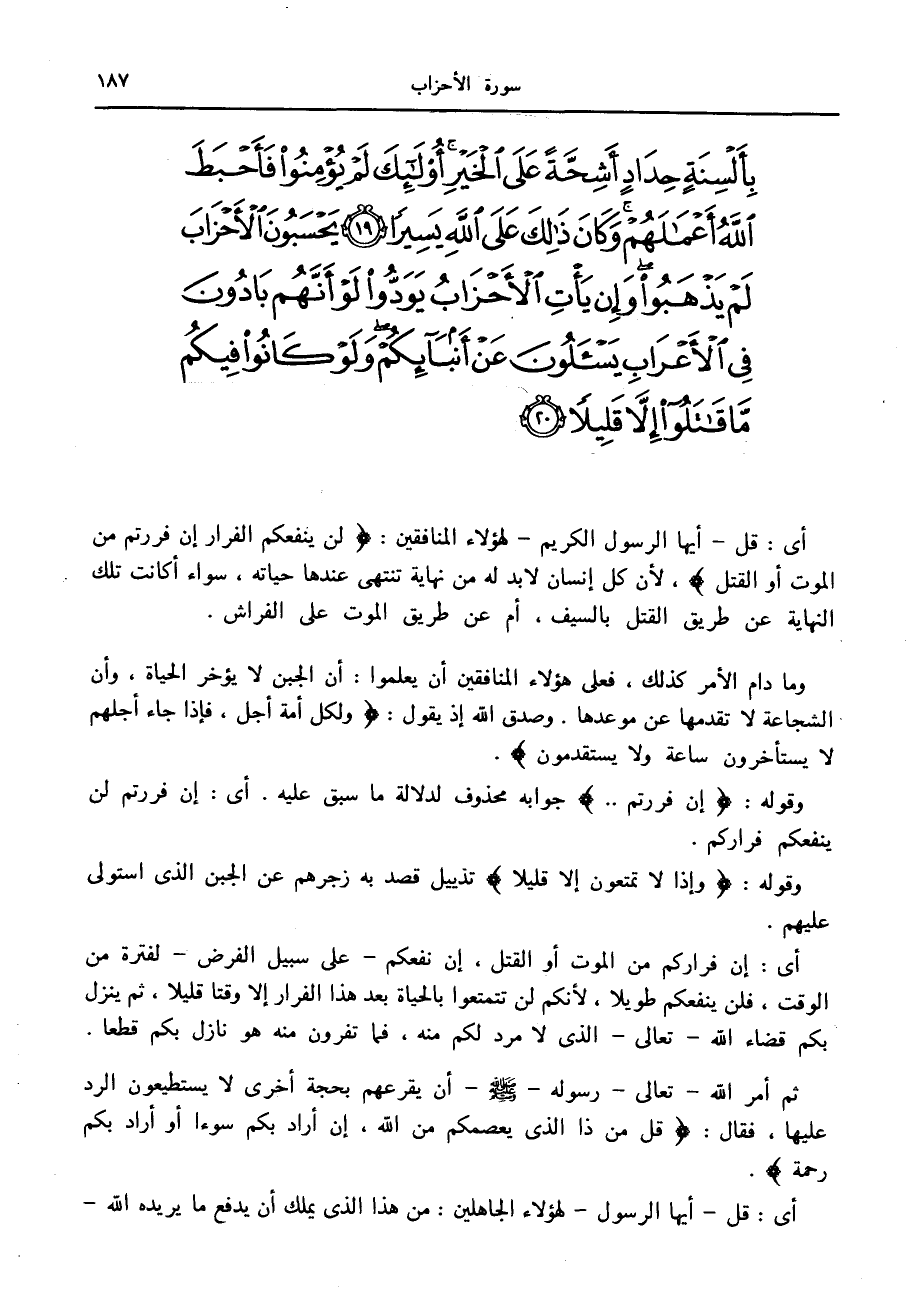 سورة الأحزاب ١٨٧
بِأَلْسِنَةٍ حِدَادٍ أَشِحَّةً عَلَى ٱلْخَيْرِ ۚ أُو۟لَٰٓئِكَ لَمْ يُؤْمِنُوا۟ فَأَحْبَطَ
ٱللَّهُ أَعْمَٰلَهُمْ ۚ وَكَانَ ذَٰلِكَ عَلَى ٱللَّهِ يَسِيرًا ١٩ يَحْسَبُونَ ٱلْأَحْزَابَ
لَمْ يَذْهَبُوا۟ ۖ وَإِن يَأْتِ ٱلْأَحْزَابُ يَوَدُّوا۟ لَوْ أَنَّهُم بَادُونَ
فِى ٱلْأَعْرَابِ يَسْـَٔلُونَ عَنْ أَنۢبَآئِكُمْ ۖ وَلَوْ كَانُوا۟ فِيكُم
مَّا قَٰتَلُوٓا۟ إِلَّا قَلِيلًا ٢٠
أى : قل - أيها الرسول الكريم - لهؤلاء المنافقين : ﴿ لن ينفعكم الفرار إن فررتم من
الموت أو القتل ﴾ ، لأن كل إنسان لابد له من نهاية تنتهى عندها حياته ، سواء أكانت تلك
النهاية عن طريق القتل بالسيف ، أم عن طريق الموت على الفراش .
وما دام الأمر كذلك ، فعلى هؤلاء المنافقين أن يعلموا : أن الجبن لا يؤخر الحياة ، وأن
الشجاعة لا تقدمها عن موعدها . وصدق الله إذ يقول : ﴿ ولكل أمة أجل ، فإذا جاء أجلهم
لا يستأخرون ساعة ولا يستقدمون ﴾ .
وقوله : ﴿ إن فررتم .. ﴾ جوابه محذوف لدلالة ما سبق عليه . أى : إن فررتم لن
ينفعكم فراركم .
وقوله : ﴿ وإذا لا تمتعون إلا قليلا ﴾ تذييل قصد به زجرهم عن الجبن الذى استولى
عليهم .
أى : إن فراركم من الموت أو القتل ، إن نفعكم - على سبيل الفرض - لفترة من
الوقت ، فلن ينفعكم طويلا ، لأنكم لن تتمتعوا بالحياة بعد هذا الفرار إلا وقتا قليلا ، ثم ينزل
بكم قضاء الله - تعالى - الذى لا مرد لكم منه ، فما تفرون منه هو نازل بكم قطعا .
ثم أمر الله - تعالى - رسوله - ﷺ - أن يقرعهم بحجة أخرى لا يستطيعون الرد
عليها ، فقال : ﴿ قل من ذا الذى يعصمكم من الله ، إن أراد بكم سوءا أو أراد بكم
رحمة ﴾ .
أى : قل - أيها الرسول - لهؤلاء الجاهلين : من هذا الذى يملك أن يدفع ما يريده الله -